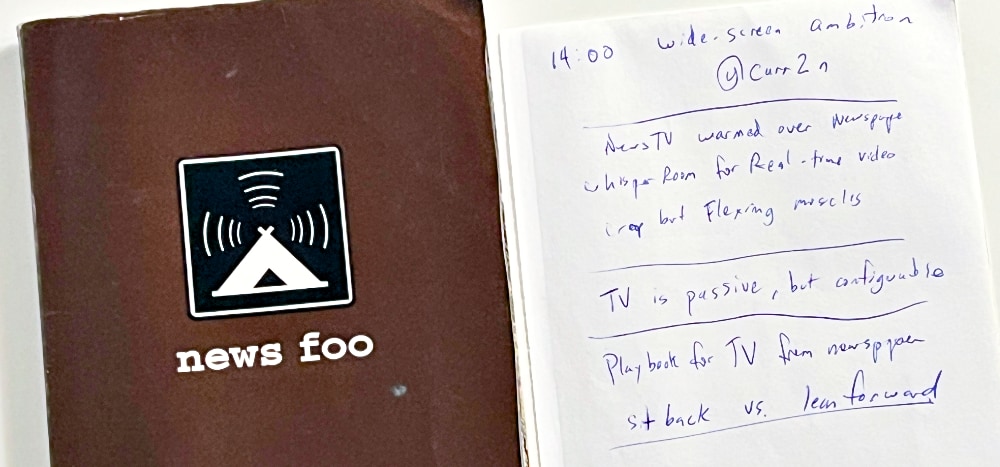 news foo
14:00 wide-screen ambition
@Curr2n
News TV warmed over Newspape
whisper Room for Real-time video
crap but Flexing muscles
TV is passive, but configurable
Playbook for TV from newspper
sit back vs. lean forward